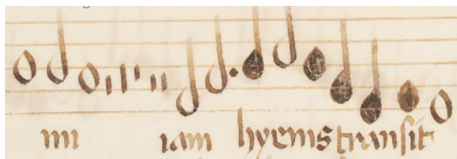 mi iam hyems transit